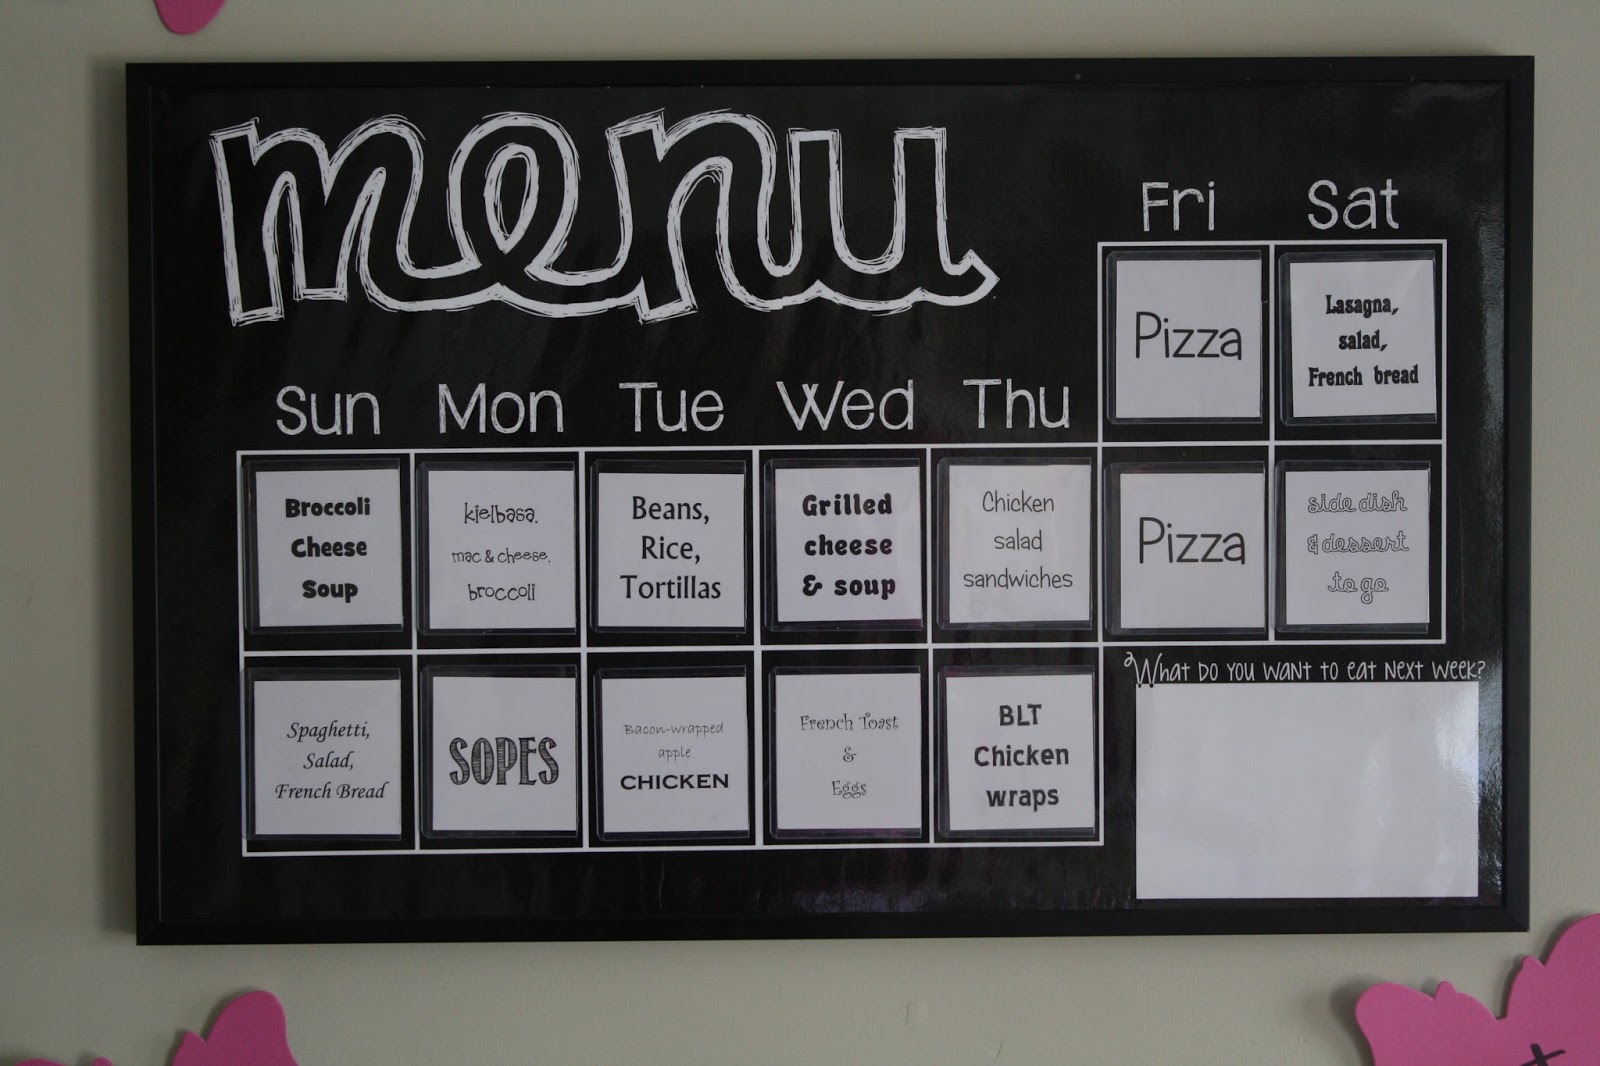 menu
Fri Sat
Pizza
Lasagna,
salad,
French bread
Sun Mon Tue Wed Thu
Broccoli
Cheese
Soup
kielbasa,
mac & cheese,
broccoli
Beans,
Rice,
Tortillas
Grilled
cheese
& soup
Chicken
salad
sandwiches
Pizza
side dish
& dessert
to go
Spaghetti,
Salad,
French Bread
SOPES
Bacon-wrapped
apple
CHICKEN
French Toast
&
Eggs
BLT
Chicken
wraps
What do you want to eat next week?